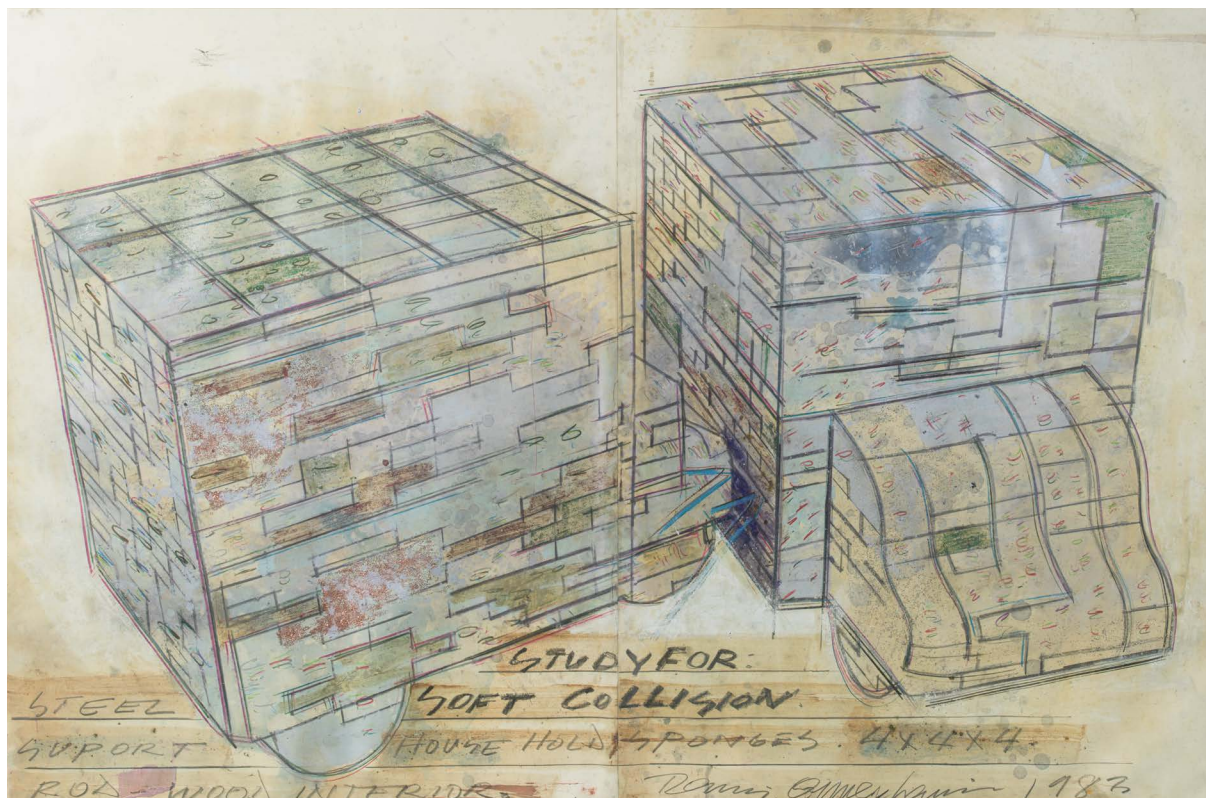 STUDY FOR:
STEEL SOFT COLLISION.
SUPORT HOUSE HOLD SPONGES. 4X4X4.
ROD - WOOD INTERIOR Dennis Oppenheim 1983